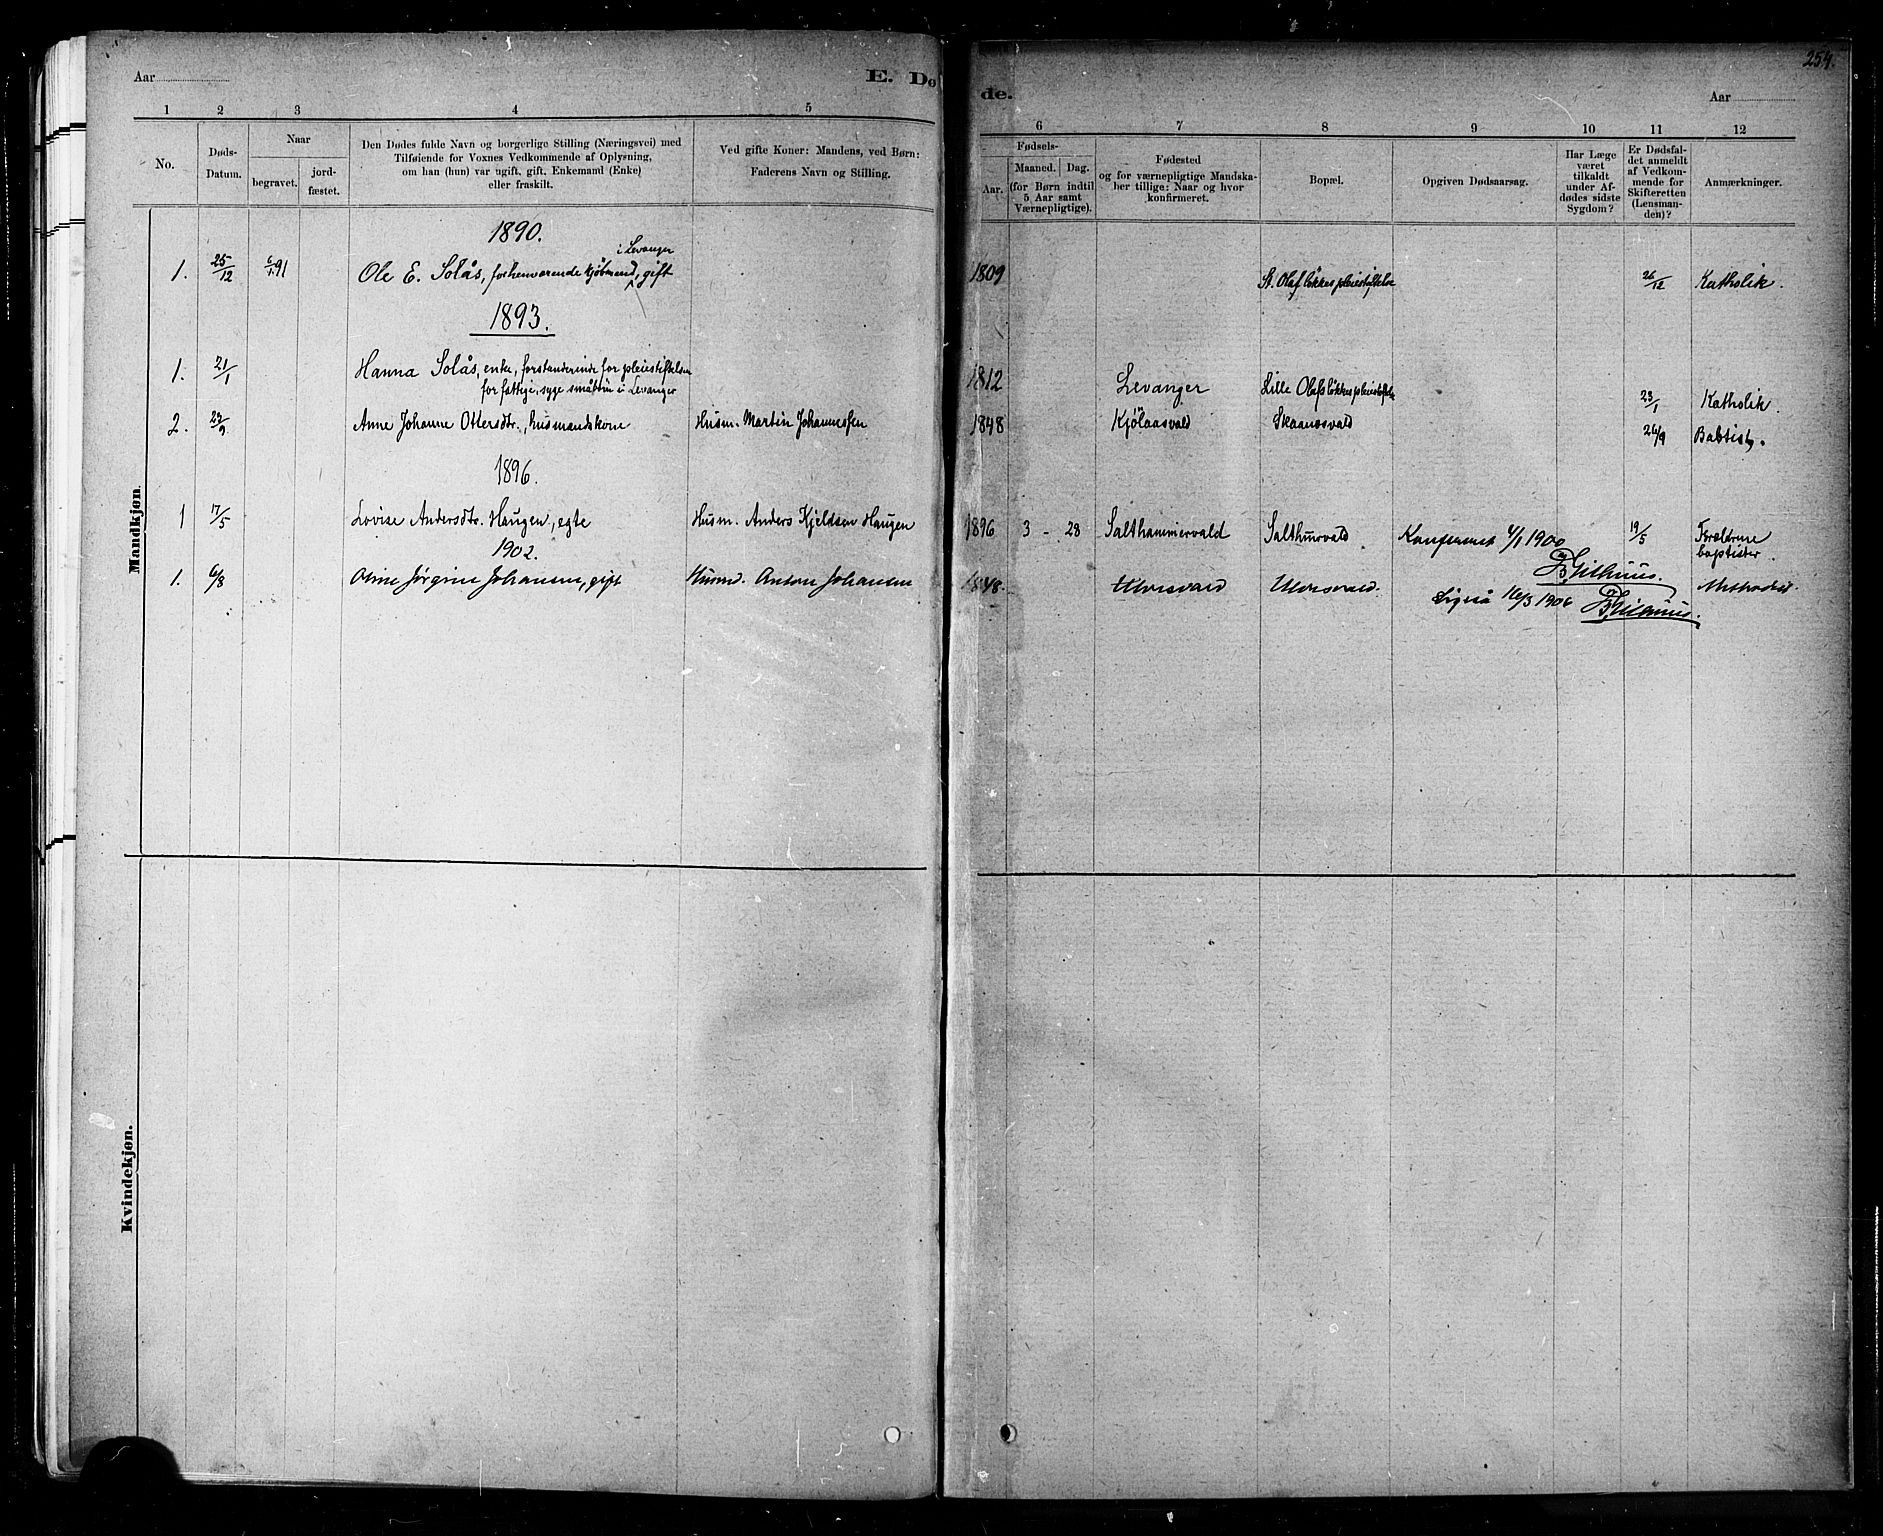 254.
Aar
E. Dø
de.
Aar
1 2 3 4 5
6 7 8 9 10 11 12
No.
Døds-
Datum.
Naar
begravet.
jord-
fæstet.
Den Dødes fulde Navn og borgerlige Stilling (Næringsvei) med
Tilføiende for Voxnes Vedkommende af Oplysning,
om han (hun) var ugift, gift, Enkemand (Enke)
eller fraskilt.
Ved gifte Koner: Mandens, ved Børn:
Faderens Navn og Stilling.
Fødsels-
Aar.
Maaned.
Dag.
(for Børn indtil
5 Aar samt
Værnepligtige).
Fødested
og for værnepligtige Mandska-
ber tillige: Naar og hvor
konfirmeret.
Bopæl.
Opgiven Dødsaarsag.
Har Læge
været
tilkaldt
under Af-
dødes sidste
Sygdom?
Er Dødsfal-
det anmeldt
af Vedkom-
mende for
Skifteretten
(Lensman-
den)?
Anmærkninger.
Mandkjøn.
1890.
i Levanger
1. 25/12 6/1 91 Ole E. Solås, forhenværende kjøbmand, gift 1809 St. Olafløkkes pleiestiftelse 26/12 Katholik.
1893.
1. 21/1 Hanna Solås, enke, forstanderinde for pleiestiftelsen 1812 Levanger Lille Olafsløkkes pleiestiftelse 23/1 Katholik.
for fattige, syge småbørn i Levanger
2. 23/9 Anne Johanne Ottersdtr., husmandskone Husm. Martin Johannesen 1848 Kjølaasvald Skaanesvald 26/9 Babtist.
1896.
1 17/5 Lovise Andersdtr. Haugen, egte Husm. Anders Kjeldsen Haugen 1896 3 - 28 Salthammervald Salthmrvald Konfereret 4/1 1900 19/5 Forældrene
baptister.
1902.
1. 6/8 Oline Jørgine Johansen, gift Husmd. Anton Johansen 1848. Ulvesvald Ulvesvald. Methodist
Ligeså 16/3 1906
Kvindekjøn.